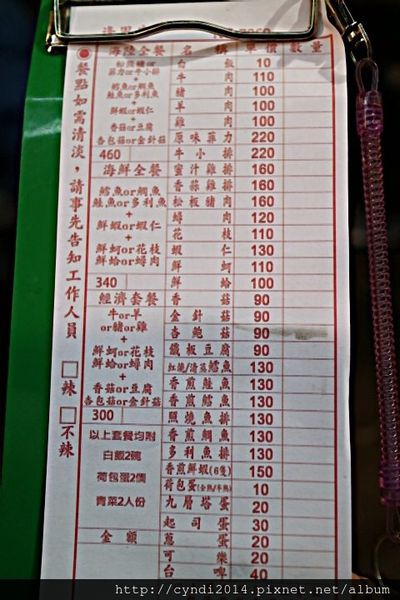 海陸全餐 名稱 單價 數量
●餐點如需清淡，請事先告知工作人員
□辣 □不辣
松阪豬or
菲力or牛小排
+
鱈魚or鯛魚
鮭魚or多利魚
+
鮮蝦or蝦仁
+
香菇or豆腐
杏包菇or金針菇
460
海鮮全餐
鱈魚or鯛魚
鮭魚or多利魚
+
鮮蝦or蝦仁
+
鮮蚵or花枝
鮮蛤or蟳肉
340
經濟套餐
牛or羊
or豬or雞
+
鮮蚵or花枝
鮮蛤or蟳肉
+
香菇or豆腐
杏包菇or金針菇
300
以上套餐均附
白飯2碗
荷包蛋2個
青菜2人份
金額
白飯 10
牛肉 110
豬肉 100
羊肉 100
雞肉 100
原味菲力 220
牛小排 220
蜜汁雞排 160
香蒜雞排 160
松板豬肉 160
蟳肉 120
花枝 110
蝦仁 130
鮮蚵 110
鮮蛤 100
香菇 90
金針菇 90
杏鮑菇 90
鐵板豆腐 90
紅燒/清蒸鱈魚 130
香煎鮭魚 130
香煎鱈魚 130
照燒魚排 130
香煎鯛魚 130
多利魚排 130
香煎鮮蝦(6隻) 150
荷包蛋(全熟/半熟) 10
九層塔蛋 20
起司蛋 30
蔥蛋 20
可樂 20
台啤 40
http://cyndi2014.pixnet.net/album